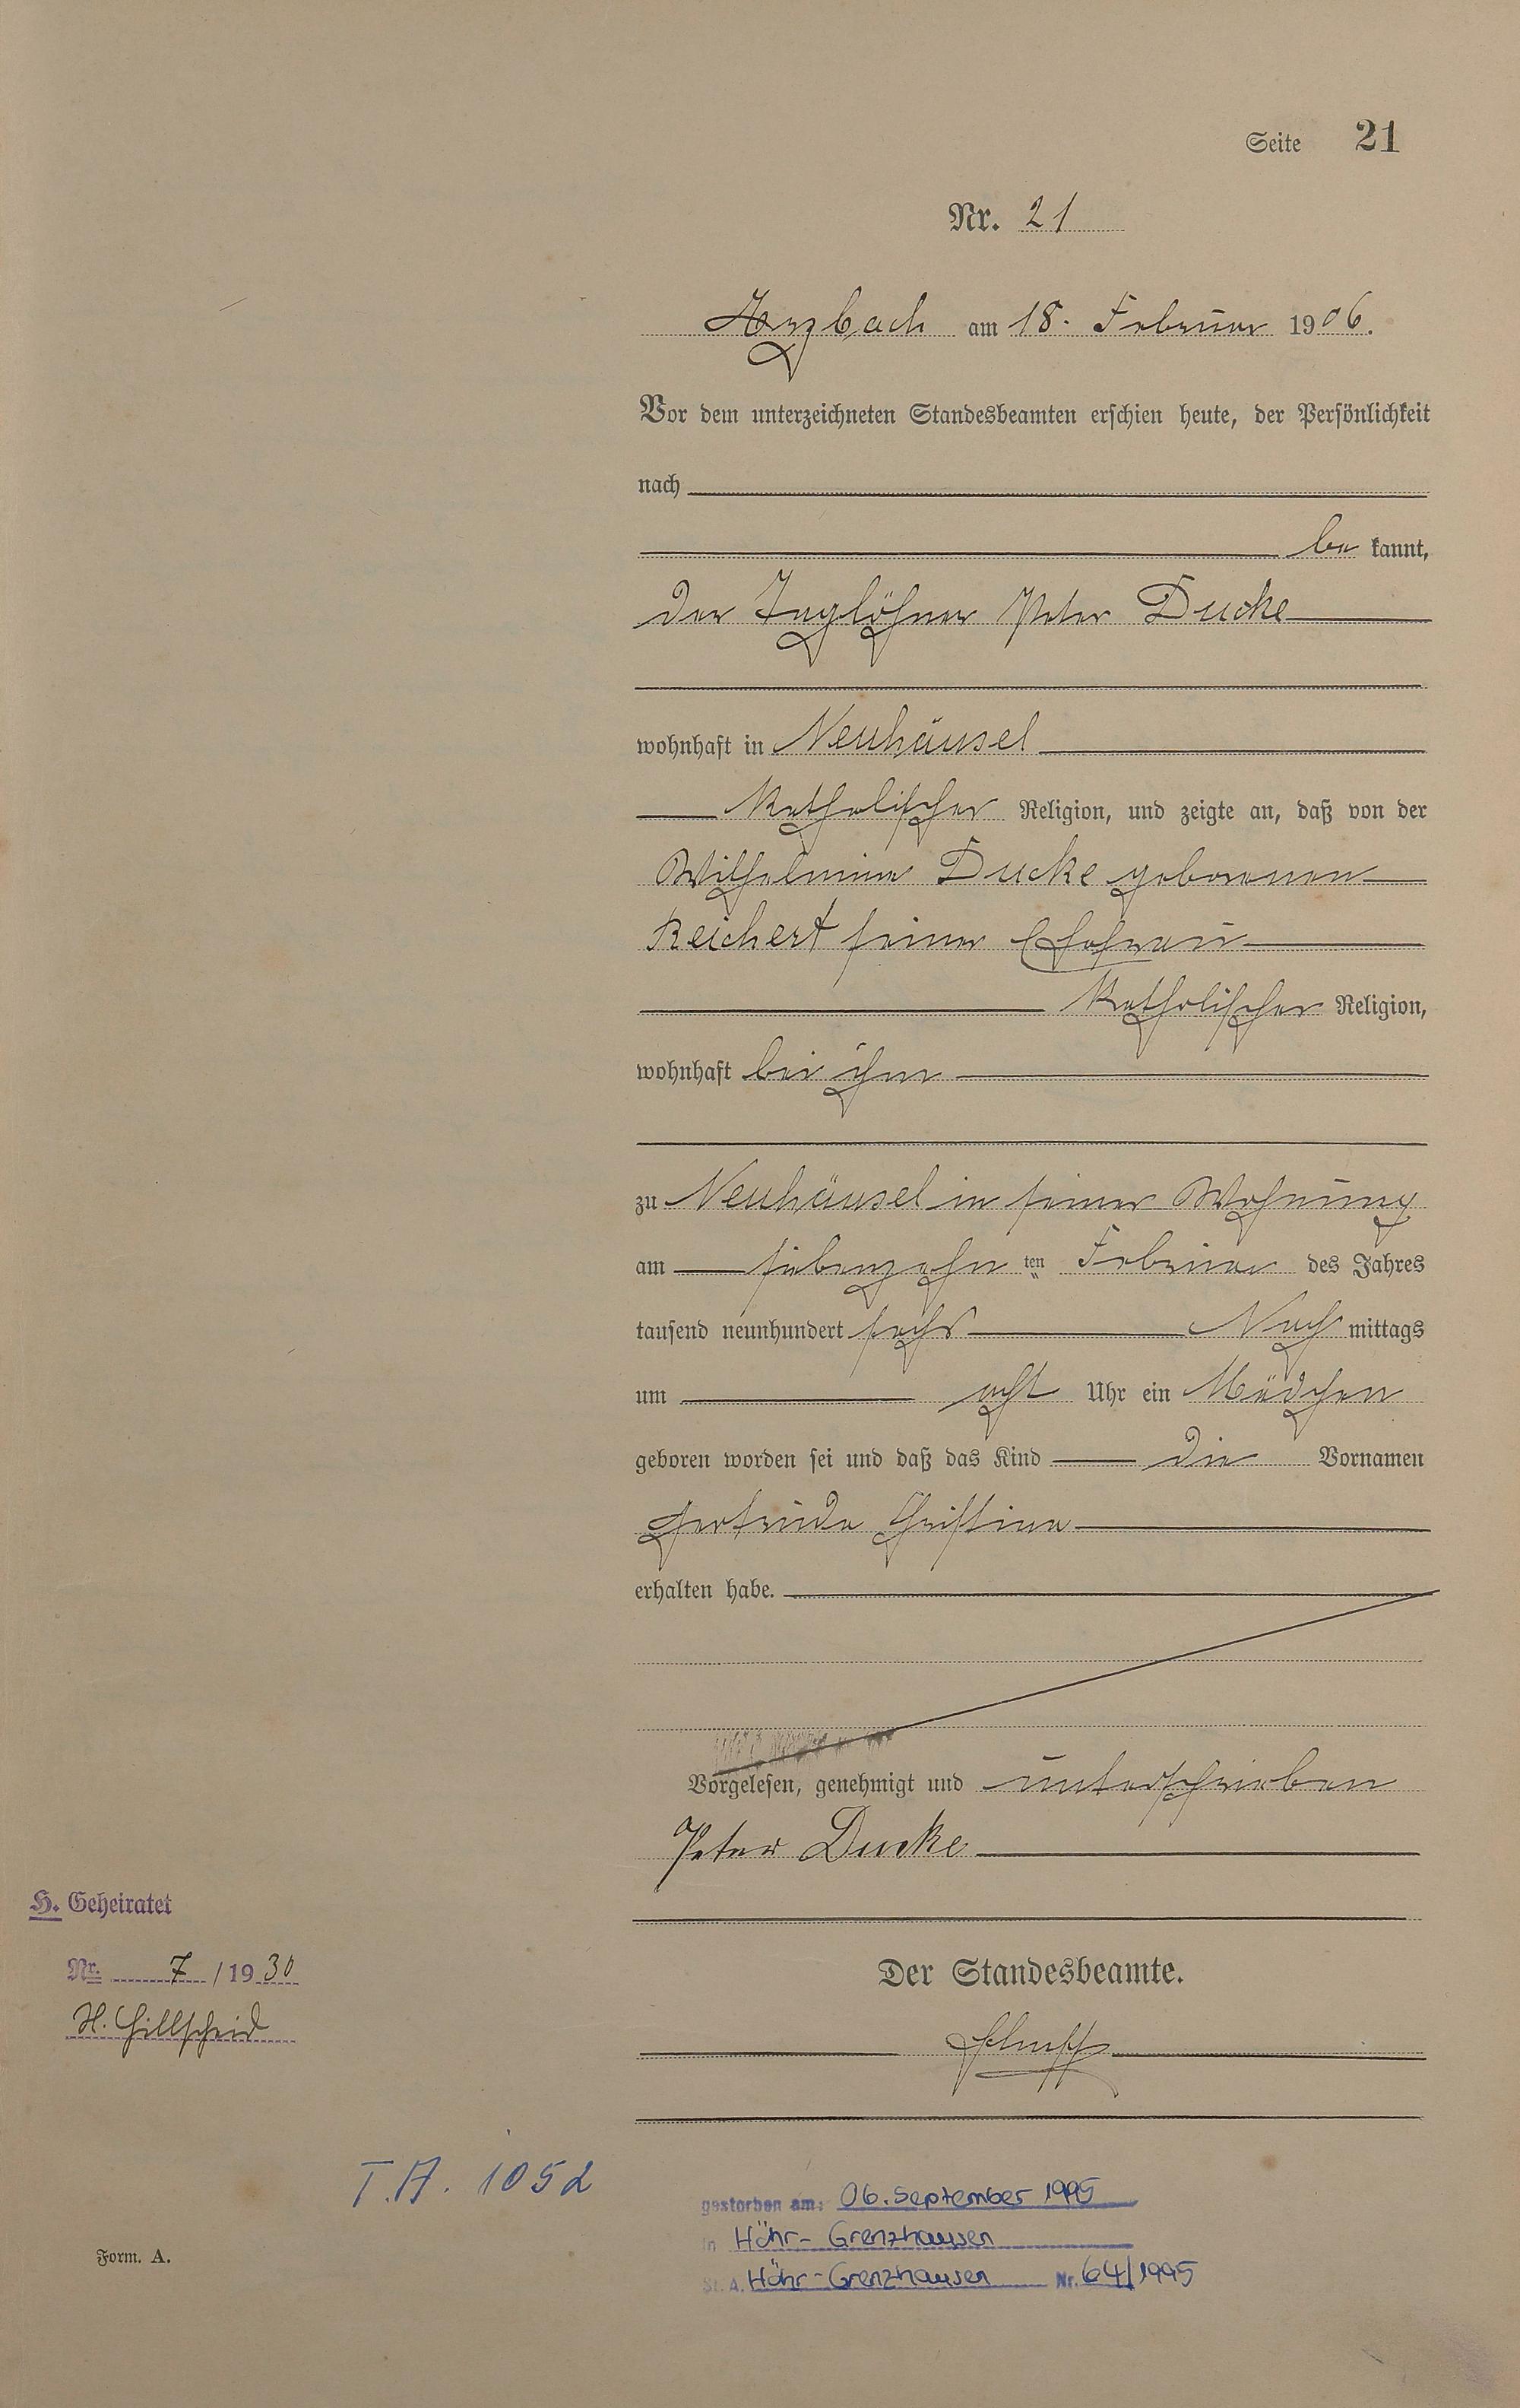 Seite 21
Nr. 21
Arzbach am 18. Februar 1906.
Vor dem unterzeichneten Standesbeamten erschien heute, der Persönlichkeit
nach
be kannt,
der Taglöhner Peter Ducke
wohnhaft in Neuhäusel
katholischer Religion, und zeigte an, daß von der
Wilhelmine Ducke geborenen
Reichert seiner Ehefrau
katholischer Religion,
wohnhaft bei ihm
zu Neuhäusel in seiner Wohnung
am siebenzehn ten Februar des Jahres
tausend neunhundert sechs Nach mittags
um acht Uhr ein Mädchen
geboren worden sei und daß das Kind die Vornamen
Gertruda Christina
erhalten habe.
Vorgelesen, genehmigt und unterschrieben
Peter Ducke
H. Geheiratet
Nr. 7 / 1930
H. Hillscheid
Der Standesbeamte.
T.A. 1052
gestorben am: 06. September 1995
in Höhr-Grenzhausen
St. A. Höhr-Grenzhausen Nr. 64/1995
Form. A.